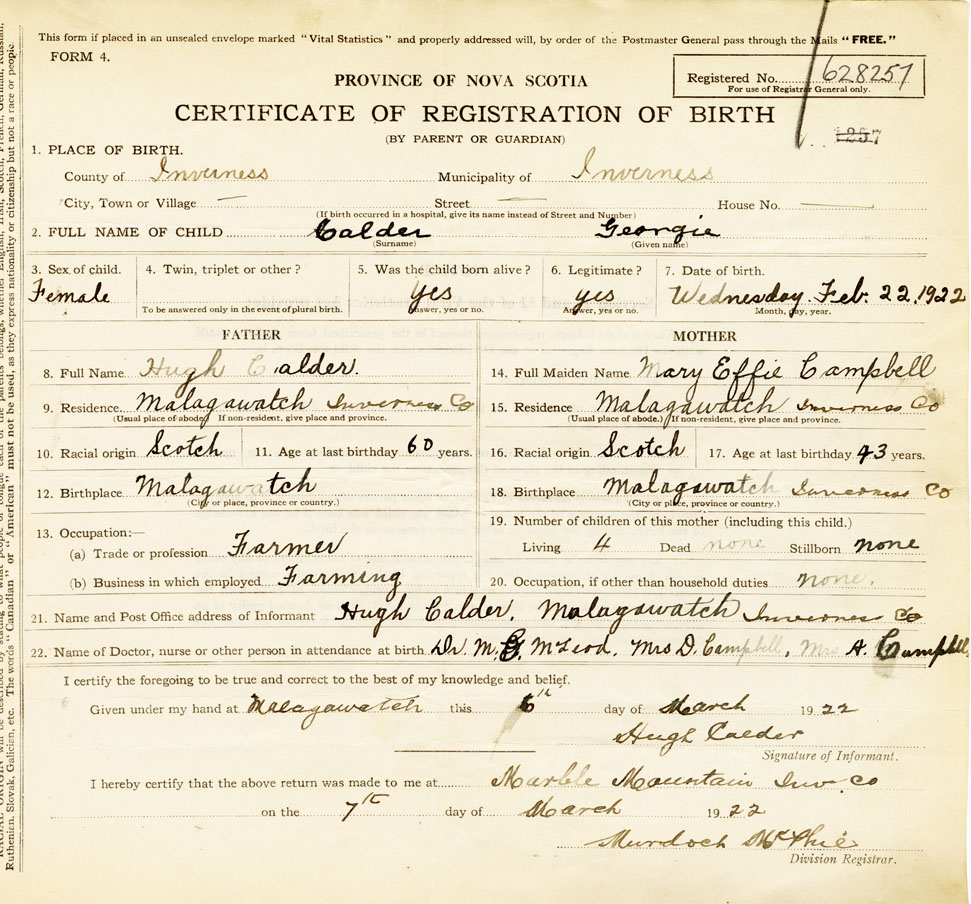 This form if placed in an unsealed envelope marked "Vital Statistics" and properly addressed will, by order of the Postmaster General pass through the Mails "FREE."
FORM 4.
Registered No. 628257
For use of Registrar General only.
PROVINCE OF NOVA SCOTIA
CERTIFICATE OF REGISTRATION OF BIRTH
1257
(BY PARENT OR GUARDIAN)
1. PLACE OF BIRTH.
County of Inverness Municipality of Inverness
City, Town or Village — Street — House No. —
(If birth occurred in a hospital, give its name instead of Street and Number)
2. FULL NAME OF CHILD Calder Georgie
(Surname) (Given name)
3. Sex of child. 4. Twin, triplet or other? 5. Was the child born alive? 6. Legitimate? 7. Date of birth.
Female yes yes Wednesday. Feb. 22. 1922
To be answered only in the event of plural birth. Answer, yes or no. Answer, yes or no. Month, day, year.
FATHER MOTHER
8. Full Name Hugh Calder. 14. Full Maiden Name Mary Effie Campbell
9. Residence. Malagawatch Inverness Co 15. Residence Malagawatch Inverness Co
(Usual place of abode) If non-resident, give place and province. (Usual place of abode.) If non-resident, give place and province.
10. Racial origin Scotch 11. Age at last birthday 60 years. 16. Racial origin Scotch 17. Age at last birthday 43 years.
12. Birthplace Malagawatch 18. Birthplace Malagawatch Inverness Co
(City or place, province or country.) (City or place, province or country.)
13. Occupation:— 19. Number of children of this mother (including this child.)
(a) Trade or profession Farmer Living 4 Dead none Stillborn none
(b) Business in which employed Farming 20. Occupation, if other than household duties none.
21. Name and Post Office address of Informant Hugh Calder. Malagawatch Inverness Co
22. Name of Doctor, nurse or other person in attendance at birth. Dr. M. G. McLeod. Mrs D. Campbell, Mrs A. Campbell,
I certify the foregoing to be true and correct to the best of my knowledge and belief.
Given under my hand at Malagawatch this 6th day of March 1922
Hugh Calder
Signature of Informant.
I hereby certify that the above return was made to me at Marble Mountain Inv. Co
on the 7th day of March 1922
Murdoch McPhie
Division Registrar.
RACIAL ORIGIN will be described by stating to what people or
Ruthenian, Slovak, Galician, etc. The words "Canadian" or "American" must not be used, as they express nationality or citizenship but not a race or people